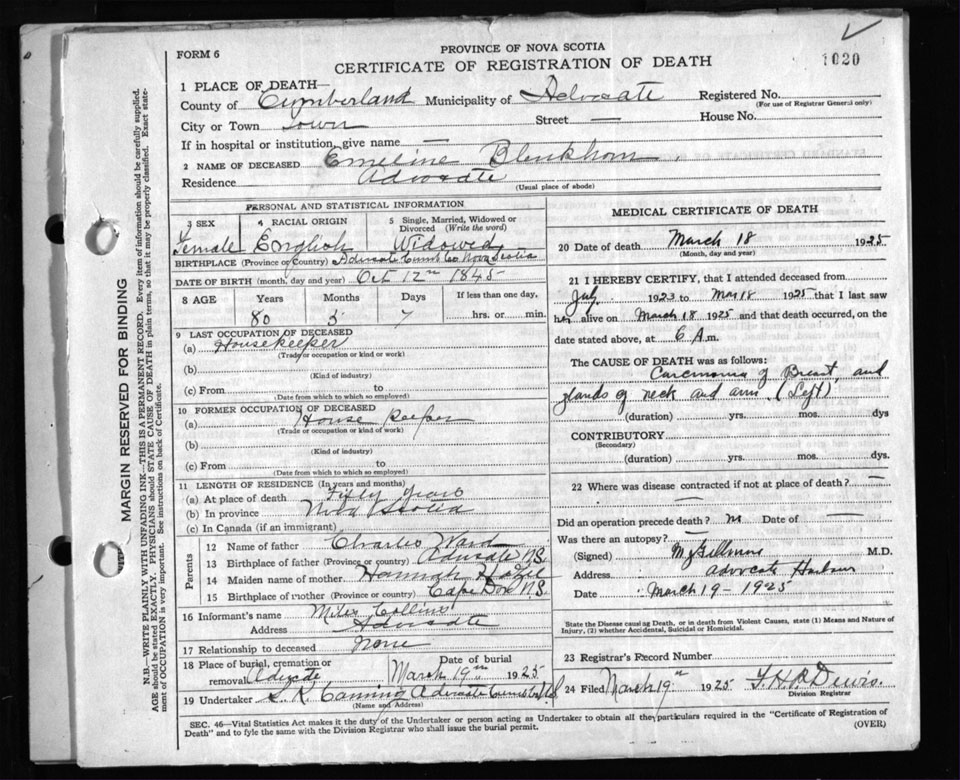 PROVINCE OF NOVA SCOTIA
FORM 6
CERTIFICATE OF REGISTRATION OF DEATH
1020
1 PLACE OF DEATH—
County of Cumberland Municipality of Advocate Registered No.
(For use of Registrar General only)
City or Town Town Street — House No.
If in hospital or institution, give name —
2 NAME OF DECEASED Emeline Blenkhorn
Residence Advocate
(Usual place of abode)
PERSONAL AND STATISTICAL INFORMATION
3 SEX 4 RACIAL ORIGIN 5 Single, Married, Widowed or Divorced (Write the word)
Female English Widowed
BIRTHPLACE (Province or Country) Advocate Cumb Co Nova Scotia
DATE OF BIRTH (month, day and year) Oct 12th 1845
8 AGE Years Months Days If less than one day,
80 5 7 hrs. or min.
9 LAST OCCUPATION OF DECEASED
(a) Housekeeper
(Trade or occupation or kind of work)
(b)
(Kind of industry)
(c) From to
(Date from which to which so employed)
10 FORMER OCCUPATION OF DECEASED
(a) House Keeper
(Trade or occupation or kind of work)
(b)
(Kind of industry)
(c) From to
(Date from which to which so employed)
11 LENGTH OF RESIDENCE (In years and months)
(a) At place of death Fifty years
(b) In province Nova Scotia
(c) In Canada (if an immigrant)
Parents
12 Name of father Charles Ward
13 Birthplace of father (Province or country) Advocate N.S.
14 Maiden name of mother Hannah
15 Birthplace of mother (Province or country) Cape Dor N.S.
16 Informant's name Miles Collins
Address Advocate
17 Relationship to deceased None
18 Place of burial, cremation or removal Advocate Date of burial March 19th 1925
19 Undertaker S. K. Canning Advocate Cumb Co N.S.
(Name and Address)
MEDICAL CERTIFICATE OF DEATH
20 Date of death March 18 1925
(Month, day and year)
21 I HEREBY CERTIFY, that I attended deceased from
July 1923 to Mar 18 1925 that I last saw
her alive on March 18 1925 and that death occurred, on the
date stated above, at 6 A.m.
The CAUSE OF DEATH was as follows:
Carcinoma of Breast, and
glands of neck and arm. (Left)
(duration) yrs. mos. dys
CONTRIBUTORY
(Secondary)
(duration) yrs. mos. dys.
22 Where was disease contracted if not at place of death? —
Did an operation precede death? no Date of —
Was there an autopsy? —
(Signed) M.D.
Address Advocate Harbour
Date March 19 - 1925
State the Disease causing Death, or in death from Violent Causes, state (1) Means and Nature of Injury, (2) whether Accidental, Suicidal or Homicidal.
23 Registrar's Record Number
24 Filed March 19th 1925
Division Registrar
SEC. 46—Vital Statistics Act makes it the duty of the Undertaker or person acting as Undertaker to obtain all the particulars required in the "Certificate of Registration of
Death" and to fyle the same with the Division Registrar who shall issue the burial permit. (OVER)
MARGIN RESERVED FOR BINDING
N.B.—WRITE PLAINLY, WITH UNFADING INK—THIS IS A PERMANENT RECORD. Every item of information should be carefully supplied.
AGE should be stated EXACTLY. PHYSICIANS should STATE CAUSE OF DEATH in plain terms, so that it may be properly classified. Exact statement of OCCUPATION is very important. See instructions on back of Certificate.